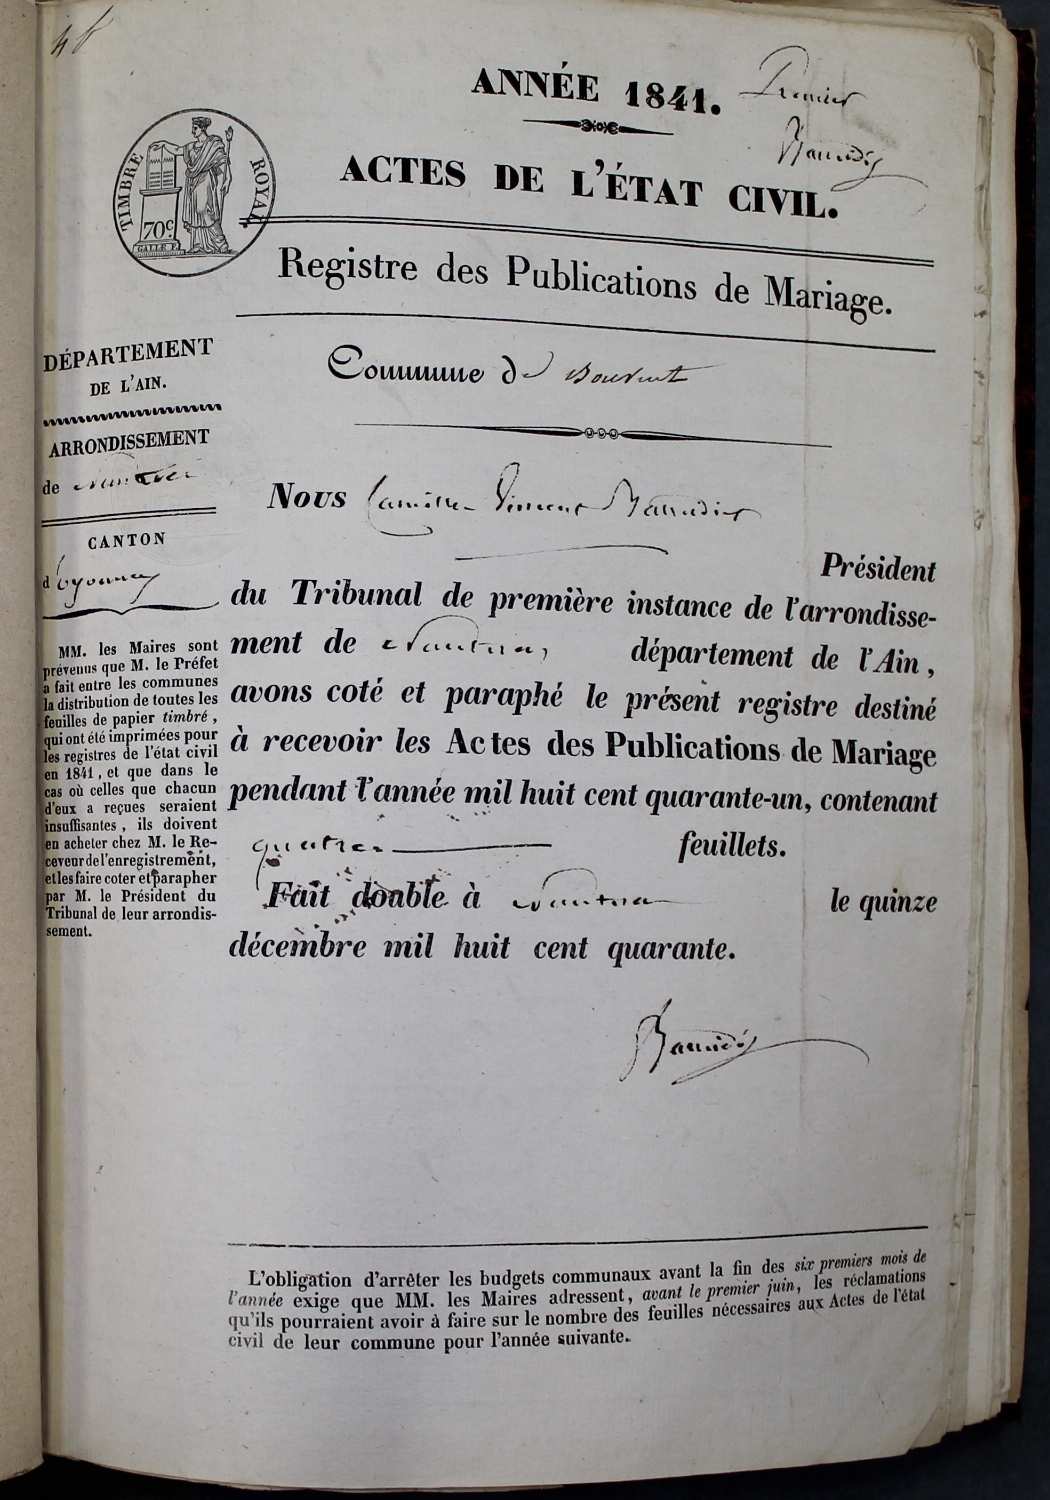 ANNÉE 1841.
Premier
ACTES DE L'ÉTAT CIVIL.
TIMBRE ROYAL
70c.
GALLE F.
Registre des Publications de Mariage.
Commune de Bouvent
DÉPARTEMENT
DE L'AIN.
ARRONDISSEMENT
de Nantua
CANTON
d'Oyonnax
MM. les Maires sont
prévenus que M. le Préfet
a fait entre les communes
la distribution de toutes les
feuilles de papier timbré,
qui ont été imprimées pour
les registres de l'état civil
en 1841, et que dans le
cas où celles que chacun
d'eux a reçues seraient
insuffisantes, ils doivent
en acheter chez M. le Re-
ceveur de l'enregistrement,
et les faire coter et parapher
par M. le Président du
Tribunal de leur arrondis-
sement.
Nous Camille Vincent
Président
du Tribunal de première instance de l'arrondisse-
ment de Nantua, département de l'Ain,
avons coté et paraphé le présent registre destiné
à recevoir les Actes des Publications de Mariage
pendant l'année mil huit cent quarante-un, contenant
quatre feuillets.
Fait double à Nantua le quinze
décembre mil huit cent quarante.
L'obligation d'arrêter les budgets communaux avant la fin des six premiers mois de
l'année exige que MM. les Maires adressent, avant le premier juin, les réclamations
qu'ils pourraient avoir à faire sur le nombre des feuilles nécessaires aux Actes de l'état
civil de leur commune pour l'année suivante.